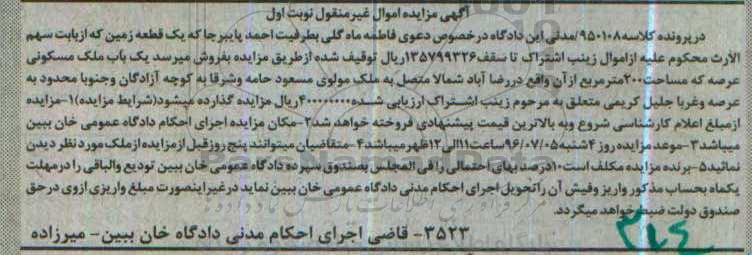 آگهی مزایده اموال غیر منقول نوبت اول
در پرونده کلاسه ۹۵۰۱۰۸/مدنی این دادگاه درخصوص دعوی فاطمه ماه گلی بطرفیت احمد پایبرجا که یک قطعه زمین که ازبابت سهم
الأرث محکوم علیه ازاموال زینب اشتراک تا سقف۱۳۵۷۹۹۳۲۶ریال توقیف شده ازطریق مزایده بفروش میرسد یک باب ملک مسکونی
عرصه که مساحت۲۰۰متر مربع ازآن واقع دررضا آباد شمالا متصل به ملک مولوی مسعود حامه وشرقا به کوچه آزادگان وجنوبا محدود به
عرصه وغربا جلیل کریمی متعلق به مرحوم زینب اشتراک ارزیابی شده۴۰۰۰۰۰۰۰۰ریال مزایده گذارده میشود(شرایط مزایده)۱-مزایده
ازمبلغ اعلام کارشناسی شروع وبه بالاترین قیمت پیشنهادی فروخته خواهد شد۲-مکان مزایده اجرای احکام دادگاه عمومی خان ببین
میباشد۳-موعد مزایده روز ۴شنبه۹۶/۰۷/۰۵ساعت۱۱الی۱۲ظهرمیباشد۴-متقاضیان میتوانند پنج روزقبل ازمزایده ازملک مورد نظر دیدن
نمائید۵-برنده مزایده مکلف است۱۰درصد بهای احتمالی را فی المجلس بصندوق سپرده دادگاه عمومی خان ببین تودیع والباقی را درمهلت
یکماه بحساب مذکور واریز وفیش آن راتحویل اجرای احکام مدنی دادگاه عمومی خان ببین نماید درغیر اینصورت مبلغ واریزی ازوی درحق
صندوق دولت ضبط خواهد میگردد.
۳۵۲۳- قاضی اجرای احکام مدنی دادگاه خان ببین- میرزاده
۳۱۴